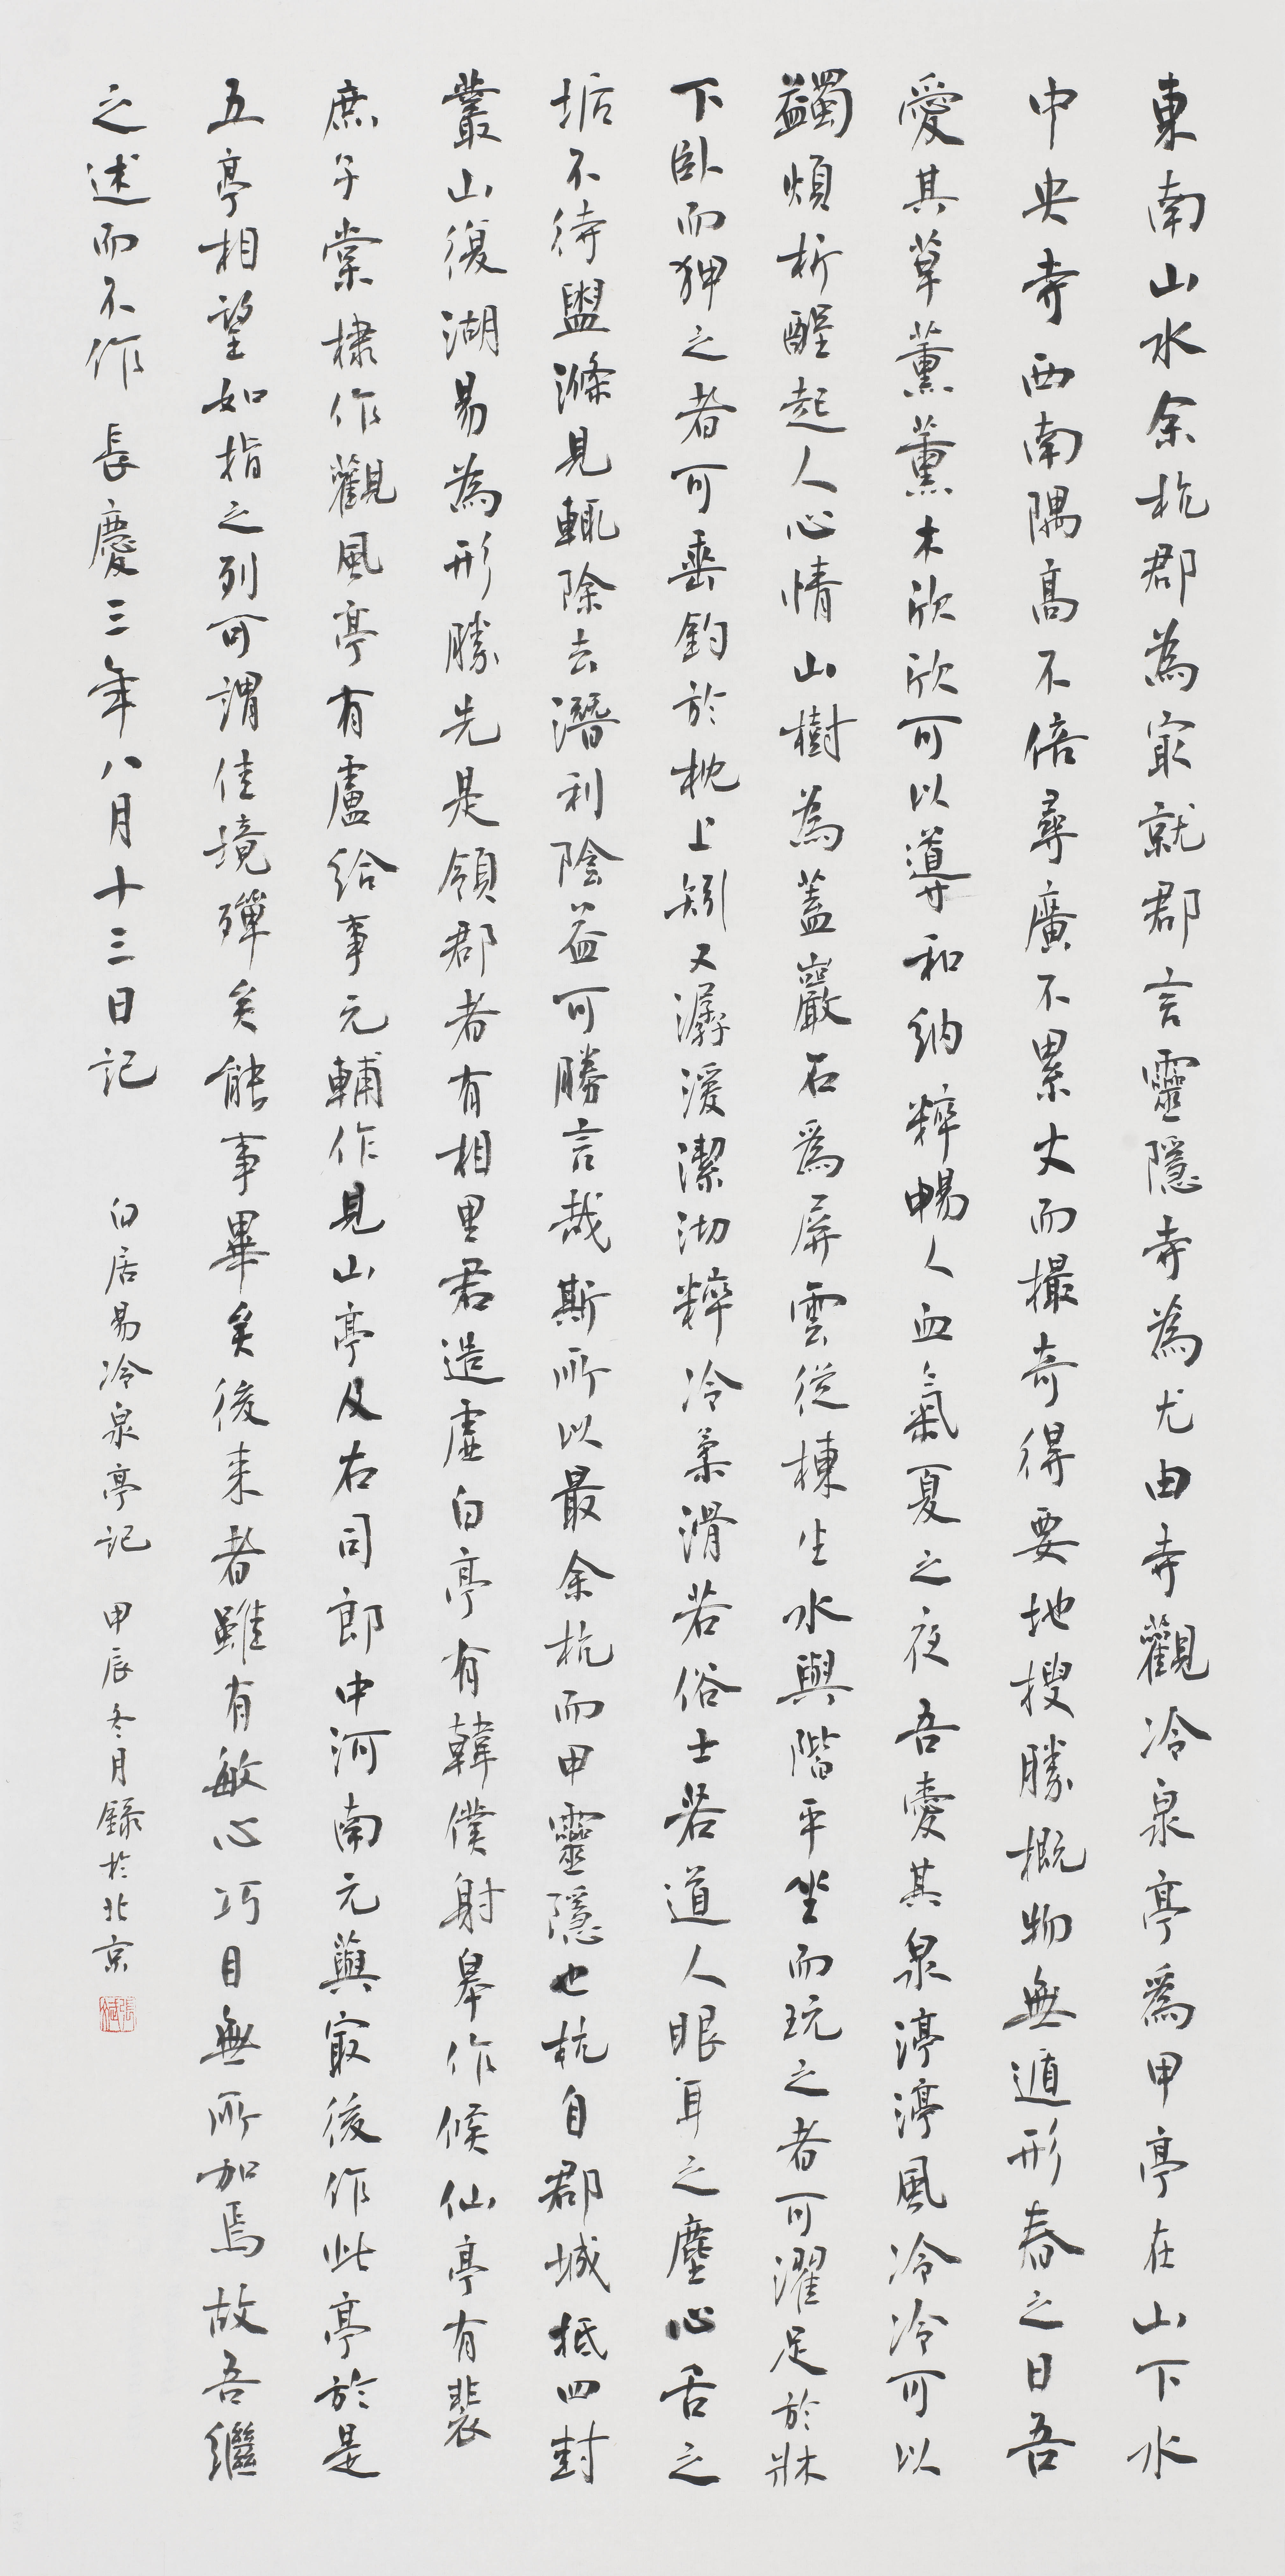 東南山水余杭郡為冣就郡言靈隱寺為尤由寺觀冷泉亭為甲亭在山下水
中央寺西南隅高不倍尋廣不累丈而撮奇得要地搜勝概物無遁形春之日吾
愛其草薰薰木欣欣可以導和納粹暢人血氣夏之夜吾愛其泉渟渟風冷冷可以
蠲煩析酲起人心情山樹為蓋巖石為屏雲從棟生水與階平坐而玩之者可濯足於牀
下臥而狎之者可垂釣於枕上矧又潺湲潔沏粹冷柔滑若俗士若道人眼耳之塵心舌之
垢不待盥滌見輒除去潛利陰益可勝言哉斯所以最余杭而甲靈隱也杭自郡城抵四封
叢山復湖易為形勝先是領郡者有相里君造虛白亭有韓僕射皋作候仙亭有裴
庶子棠棣作觀風亭有盧給事元輔作見山亭及右司郎中河南元藇冣後作此亭於是
五亭相望如指之列可謂佳境殫矣能事畢矣後来者雖有敏心巧目無所加焉故吾繼
之述而不作 長慶三年八月十三日記 白居易冷泉亭記 甲辰冬月錄於北京 張斌